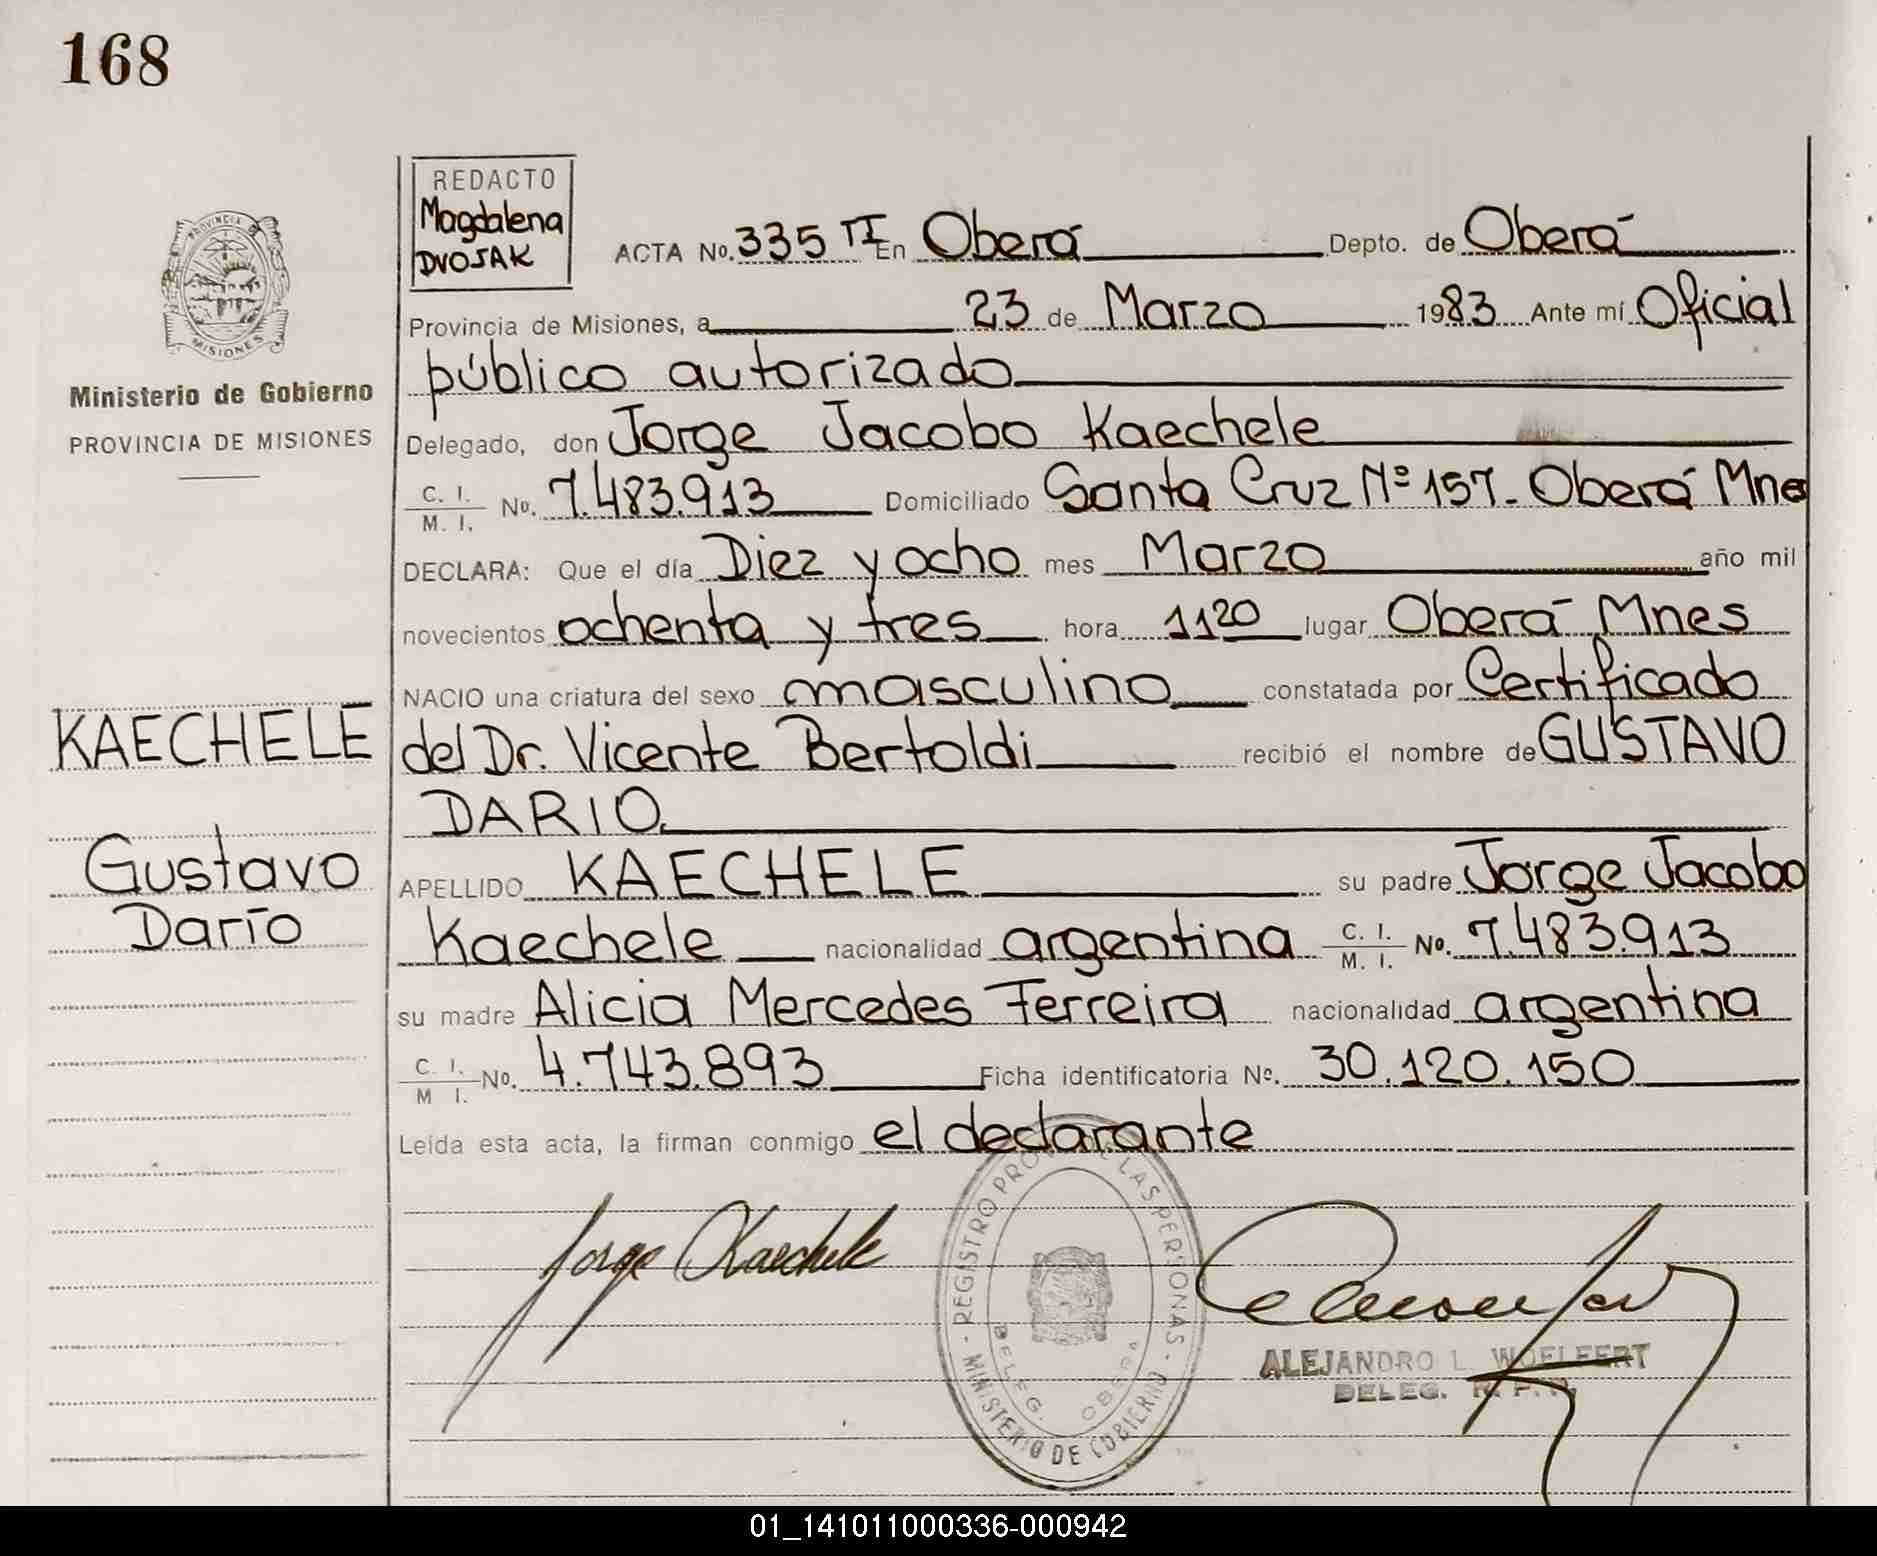 168
REDACTO
Magdalena
DVOJAK
PROVINCIA DE
MISIONES
Ministerio de Gobierno
PROVINCIA DE MISIONES
ACTA No. 335 TI En Oberá Depto. de Oberá
Provincia de Misiones, a 23 de Marzo 1983 Ante mí Oficial
público autorizado
Delegado, don Jorge Jacobo Kaechele
C. I.
M. I. No. 7.483.913 Domiciliado Santa Cruz Nº 157- Oberá Mnes
DECLARA: Que el día Diez y ocho mes Marzo año mil
novecientos ochenta y tres hora 1120 lugar Oberá Mnes
NACIO una criatura del sexo masculino constatada por Certificado
KAECHELE
del Dr. Vicente Bertoldi recibió el nombre de GUSTAVO
DARIO
Gustavo
Darío
APELLIDO KAECHELE su padre Jorge Jacobo
Kaechele nacionalidad argentina C. I. M. I. No. 7.483.913
su madre Alicia Mercedes Ferreira nacionalidad argentina
C. I.
M I. No. 4.743.893 Ficha identificatoria No. 30.120.150
Leída esta acta, la firman conmigo el declarante
Jorge Kaechele
- REGISTRO PROV. DE LAS PERSONAS -
MINISTERIO DE GOBIERNO
DELEG. OBERA
ALEJANDRO L. WOELFERT
DELEG. R. P. P.
01_141011000336-000942